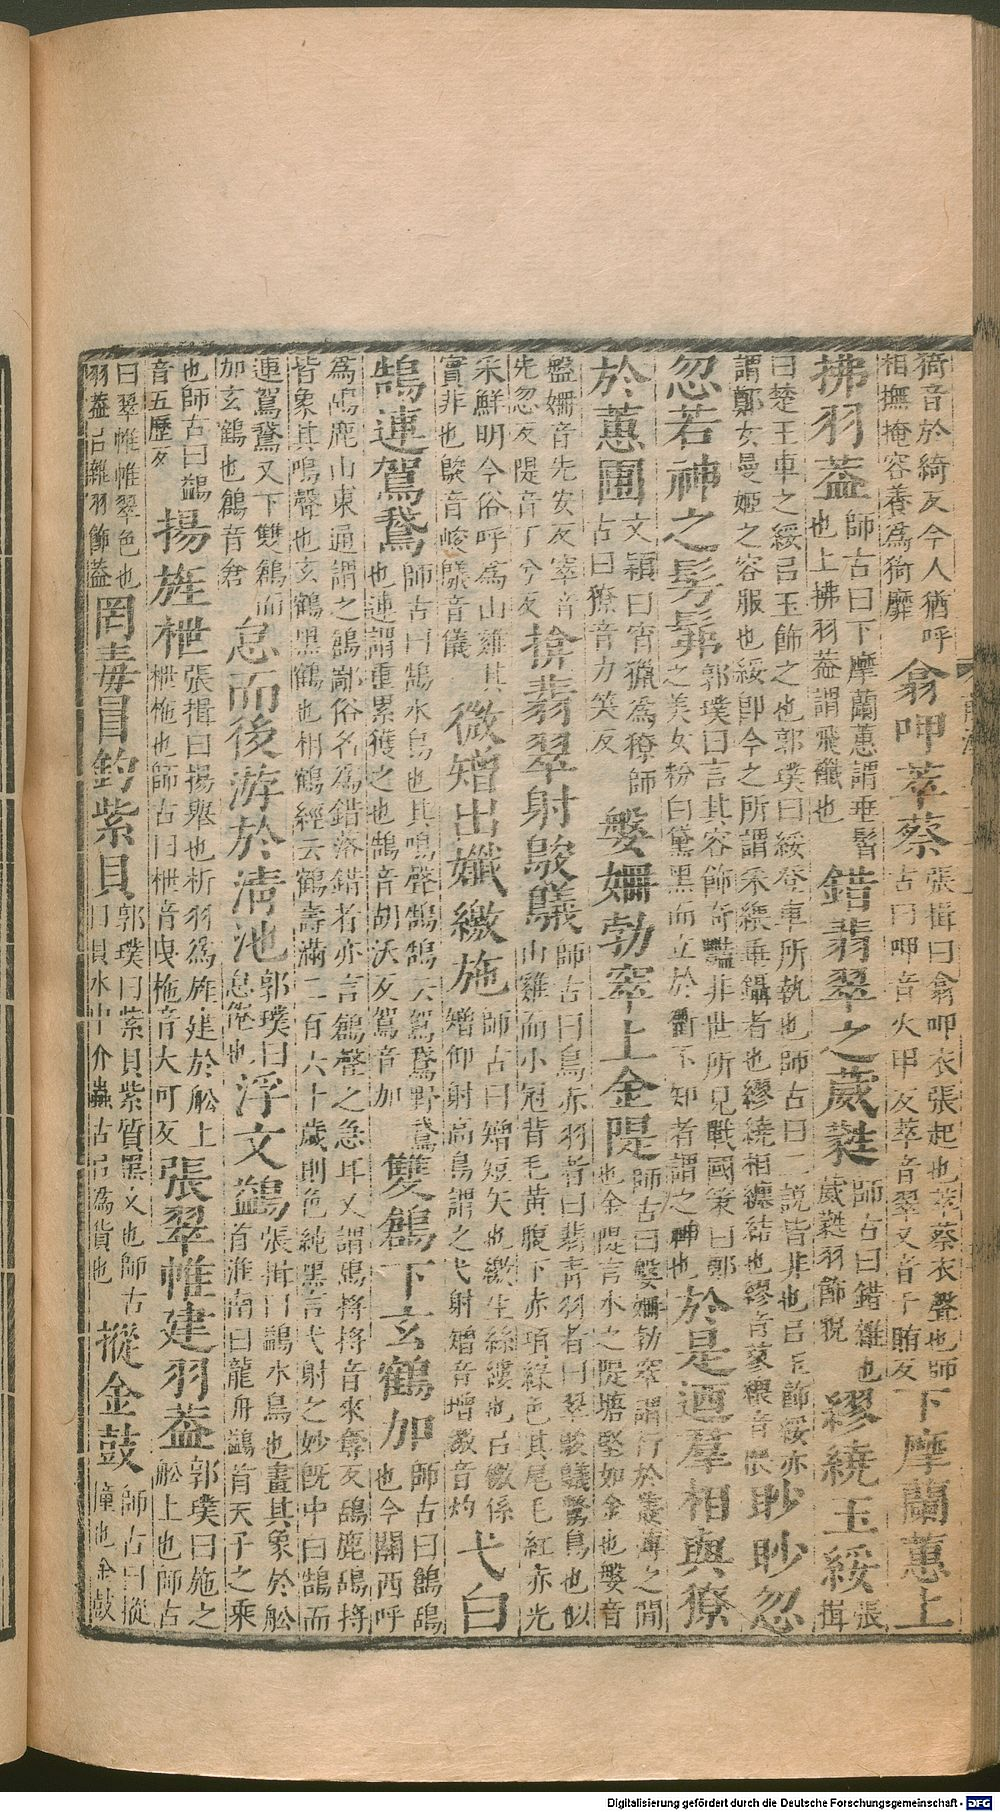 猗音於綺反今人猶呼相撫掩容養爲猗靡翕呷萃蔡張揖曰翕呷衣張起也萃蔡衣聲也師古曰呷音火甲反萃音翠又音千賄反下摩蘭蕙上
拂羽蓋師古曰下摩蘭蕙謂垂髾也上拂羽蓋謂飛襳也錯翡翠之葳蕤師古曰錯雜也葳蕤羽飾貌繆繞玉綏張揖
曰楚王車之綏㠯玉飾之也郭璞曰綏登車所執也師古曰二說皆非也㠯玉飾綏亦謂鄭女曼姬之容服也綏即今之所謂采緩垂鑷者也繆繞相纏結也繆音蓼綏音眇眇忽
忽若神之髣髴郭璞曰言其容飾奇豔非世所見戰國策曰鄭之美女粉白黛黑而立於衢不知者謂之神也於是迺羣相與獠
於蕙圃文穎曰宵獵爲獠師古曰獠音力笑反媻姍勃窣上金隄師古曰媻姍勃窣謂行於叢薄之閒也金隄言水之隄塘堅如金也媻音
盤姍音先安反窣音先忽反隄音丁兮反揜翡翠射鵔鸃師古曰鳥赤羽者曰翡青羽者曰翠鵔鸃鷩鳥也似山雞而小冠背毛黃腹下赤項綠色其尾毛紅赤光
采鮮明今俗呼爲山雞其實非也鵔音峻鸃音儀微矰出孅繳施師古曰矰短矢也繳生絲縷也㠯繳係矰仰射高鳥謂之弋射矰音增繳音灼弋白
鵠連駕鵞師古曰鵠水鳥也其鳴聲鵠鵠云駕鵞野鵞也連謂重累獲之也鵠音胡沃反駕音加雙鶬下玄鶴加師古曰鶬鴰也今關西呼
爲鴰鹿山東通謂之鶬鄙俗名爲錯落錯者亦言鶬聲之急耳又謂鴰捋捋音來奪反鴰鹿鴰捋皆象其鳴聲也玄鶴黑鶴也相鶴經云鶴壽滿二百六十歲則色純黑言弋射之妙旣中白鵠而
連駕鵞又下雙鶬而加玄鶴也鶬音倉怠而後游於淸池郭璞曰怠倦也浮文鷁張揖曰鷁水鳥也畫其象於舩首淮南曰龍舟鷁首天子之乘
也師古曰鷁音五歷反揚旌枻張揖曰揚舉也析羽爲旌建於舩上枻柂也師古曰枻音曳柂音大可反張翠帷建羽蓋郭璞曰施之舩上也師古
曰翠帷帷翠色也羽蓋㠯雜羽飾蓋罔毒冒釣紫貝郭璞曰紫貝紫質黑文也師古曰貝水中介蟲古㠯爲貨也摐金鼓師古曰摐撞也金鼓
Digitalisierung gefördert durch die Deutsche Forschungsgemeinschaft - DFG